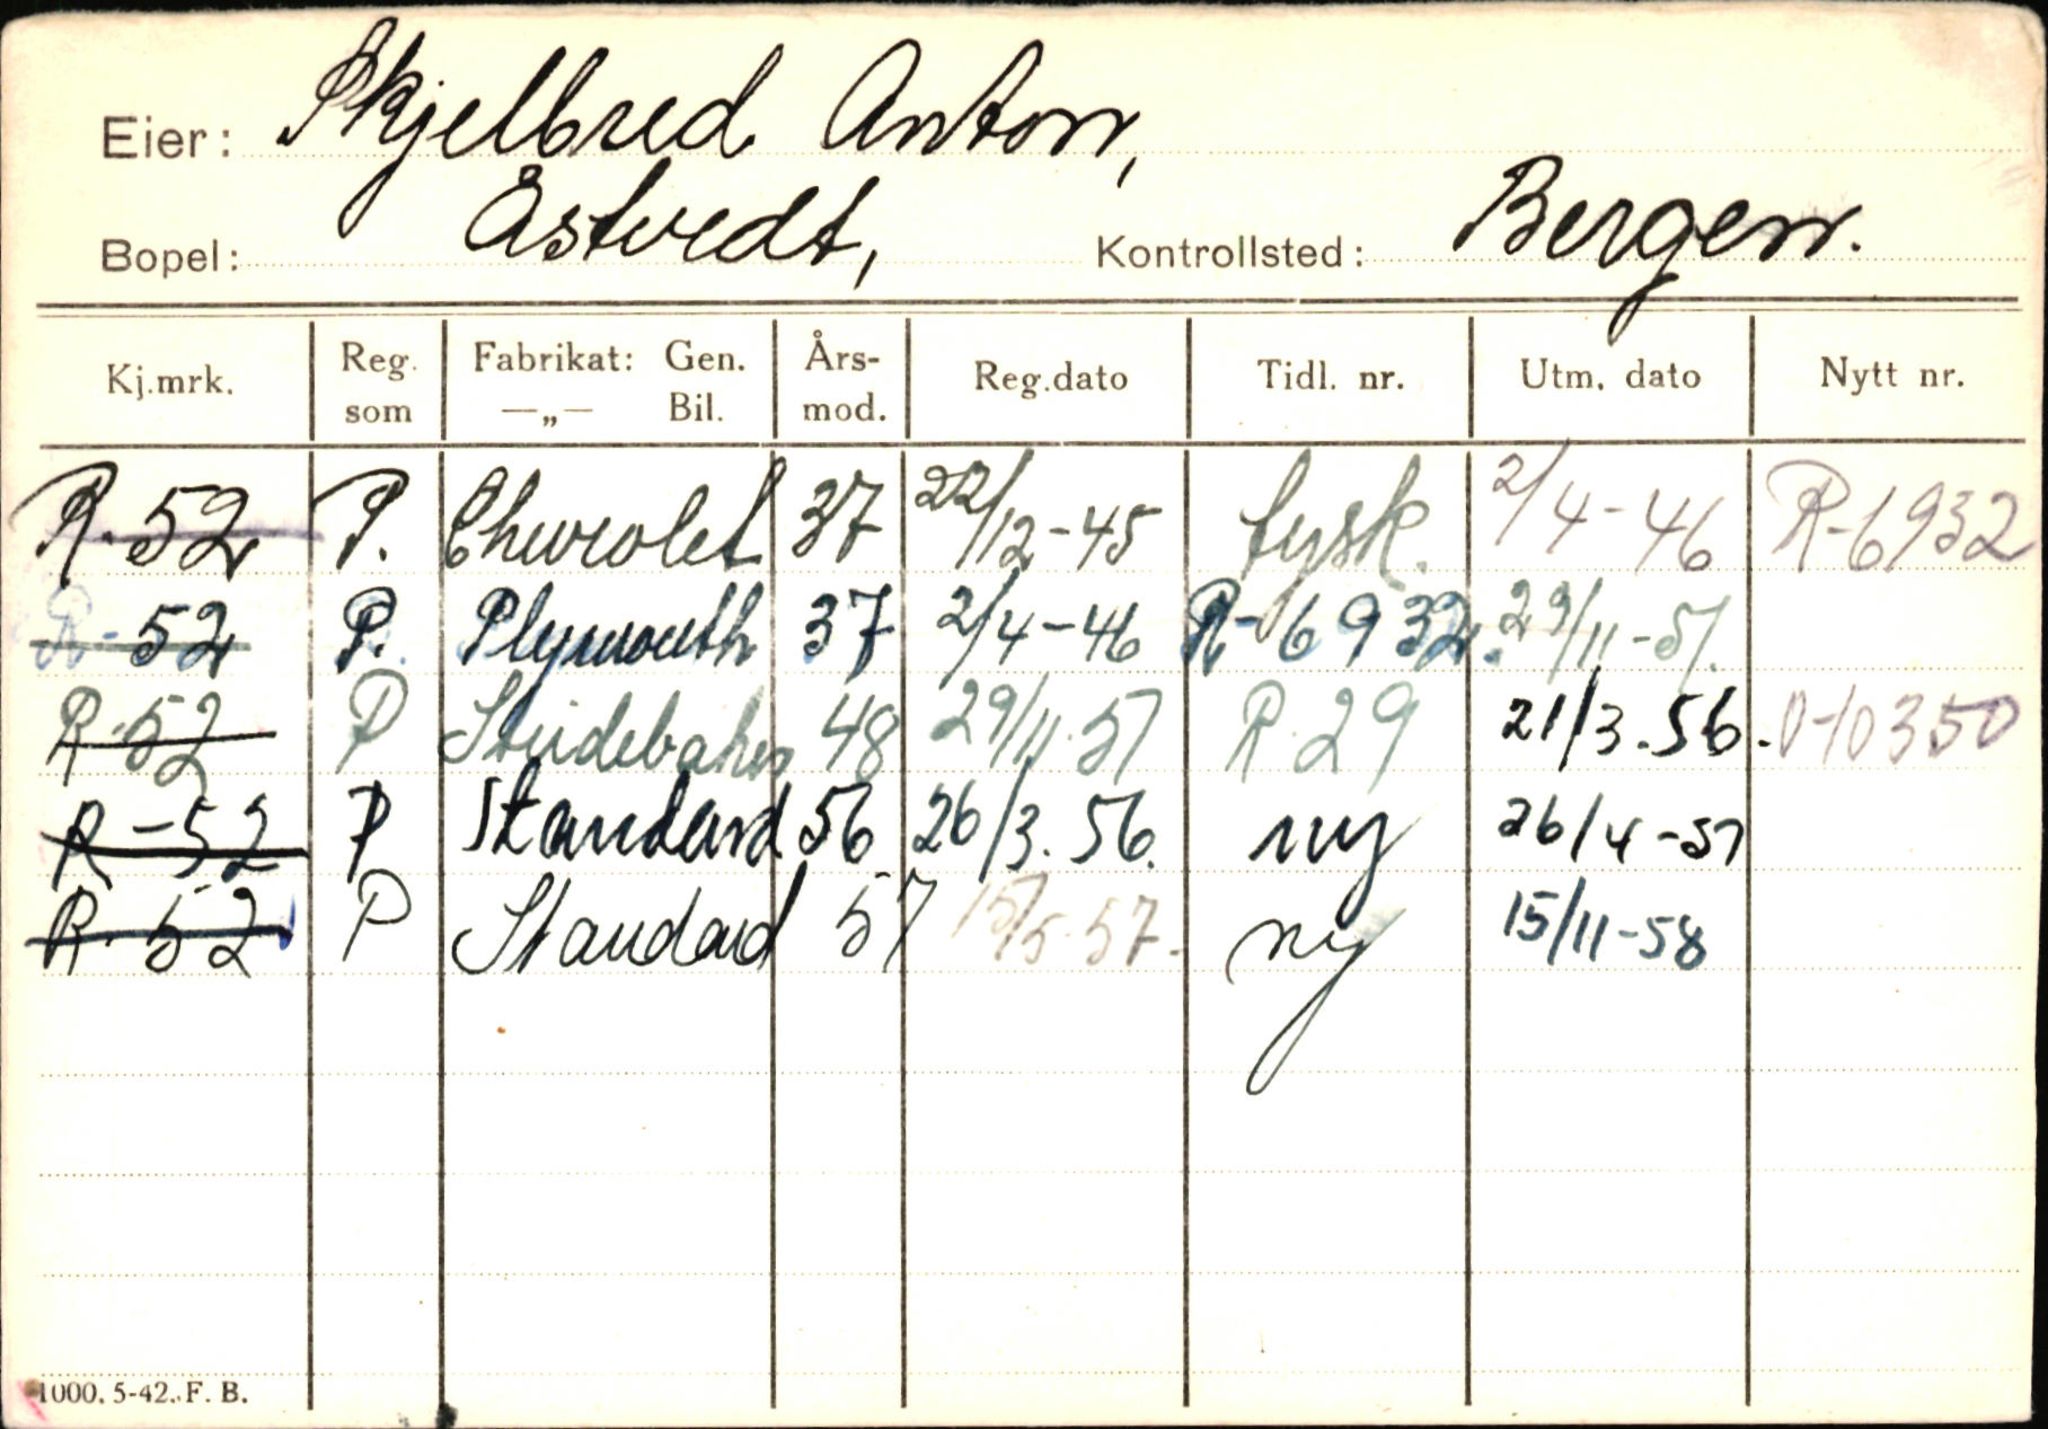 Eier: Skjelbred Anton,
Bopel: Åstvedt, Kontrollsted: Bergen.
Kj.mrk. Reg. som Fabrikat: Gen. —„— Bil. Års- mod. Reg.dato Tidl. nr. Utm. dato Nytt nr.
R-52 P. Chevrolet 37 22/12-45 tysk. 2/4-46 R-6932
R-52 P. Plymouth 37 2/4-46 R-6932. 29/11-51.
R-52 P Studebaker 48 29/11-51 R 29 21/3.56. O-10350
R-52 P Standard 56 26/3.56. ny 26/4-57
R-52 P Standard 57 15/5-57- ny 15/11-58
1000. 5-42. F. B.